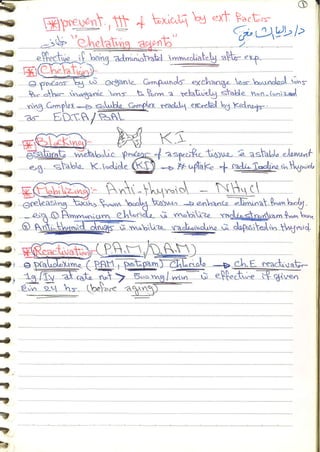 ①
prevent, ttt of toxicity by ext factors
"Chelating agents"
effective if being administrated immediately after exp.
Chelation:-
process by ω organic compounds exchange their bounded ions
for other inorganic ions to form a relatively stable non-ionized
ring Complex → soluble Complex readily excreted by Kidneys.
as EDTA/BAL
Blocking:- K.I.
saturate metabolic process of a specific tissue c̄ a stable element
e.g. stable K. Iodide (KI) → uptake of radio Iodine in thyroid
Mobilizing:- Anti-thyroid - NH4Cl
releasing toxins from body tissues → enhance eliminat. from body.
e.g. ① Ammonium chloride ω mobilize radiostrontium from bone
② Anti-thyroid drugs ω mobilize radioiodine ω deposited in thyroid
Reactivation:- (PAM/DAM)
pralidoxime (PAM, protopam) chloride → ch.E reactivator
1g/IV at rate not > 500 mg/min ω effective if given
in 24 hrs (before aging)